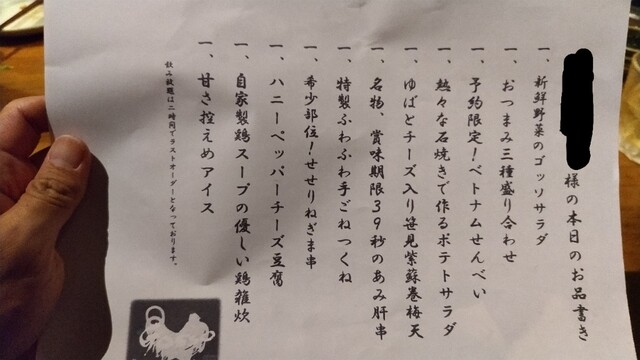 様の本日のお品書き
一、新鮮野菜のゴッソサラダ
一、おつまみ三種盛り合わせ
一、予約限定！ベトナムせんべい
一、熱々な石焼きで作るポテトサラダ
一、ゆばとチーズ入り笹見紫蘇巻梅天
一、名物、賞味期限39秒のあみ肝串
一、特製ふわふわ手ごねつくね
一、希少部位！せせりねぎま串
一、ハニーペッパーチーズ豆腐
一、自家製鶏スープの優しい鶏雑炊
一、甘さ控えめアイス
飲み放題は二時間でラストオーダーとなっております。